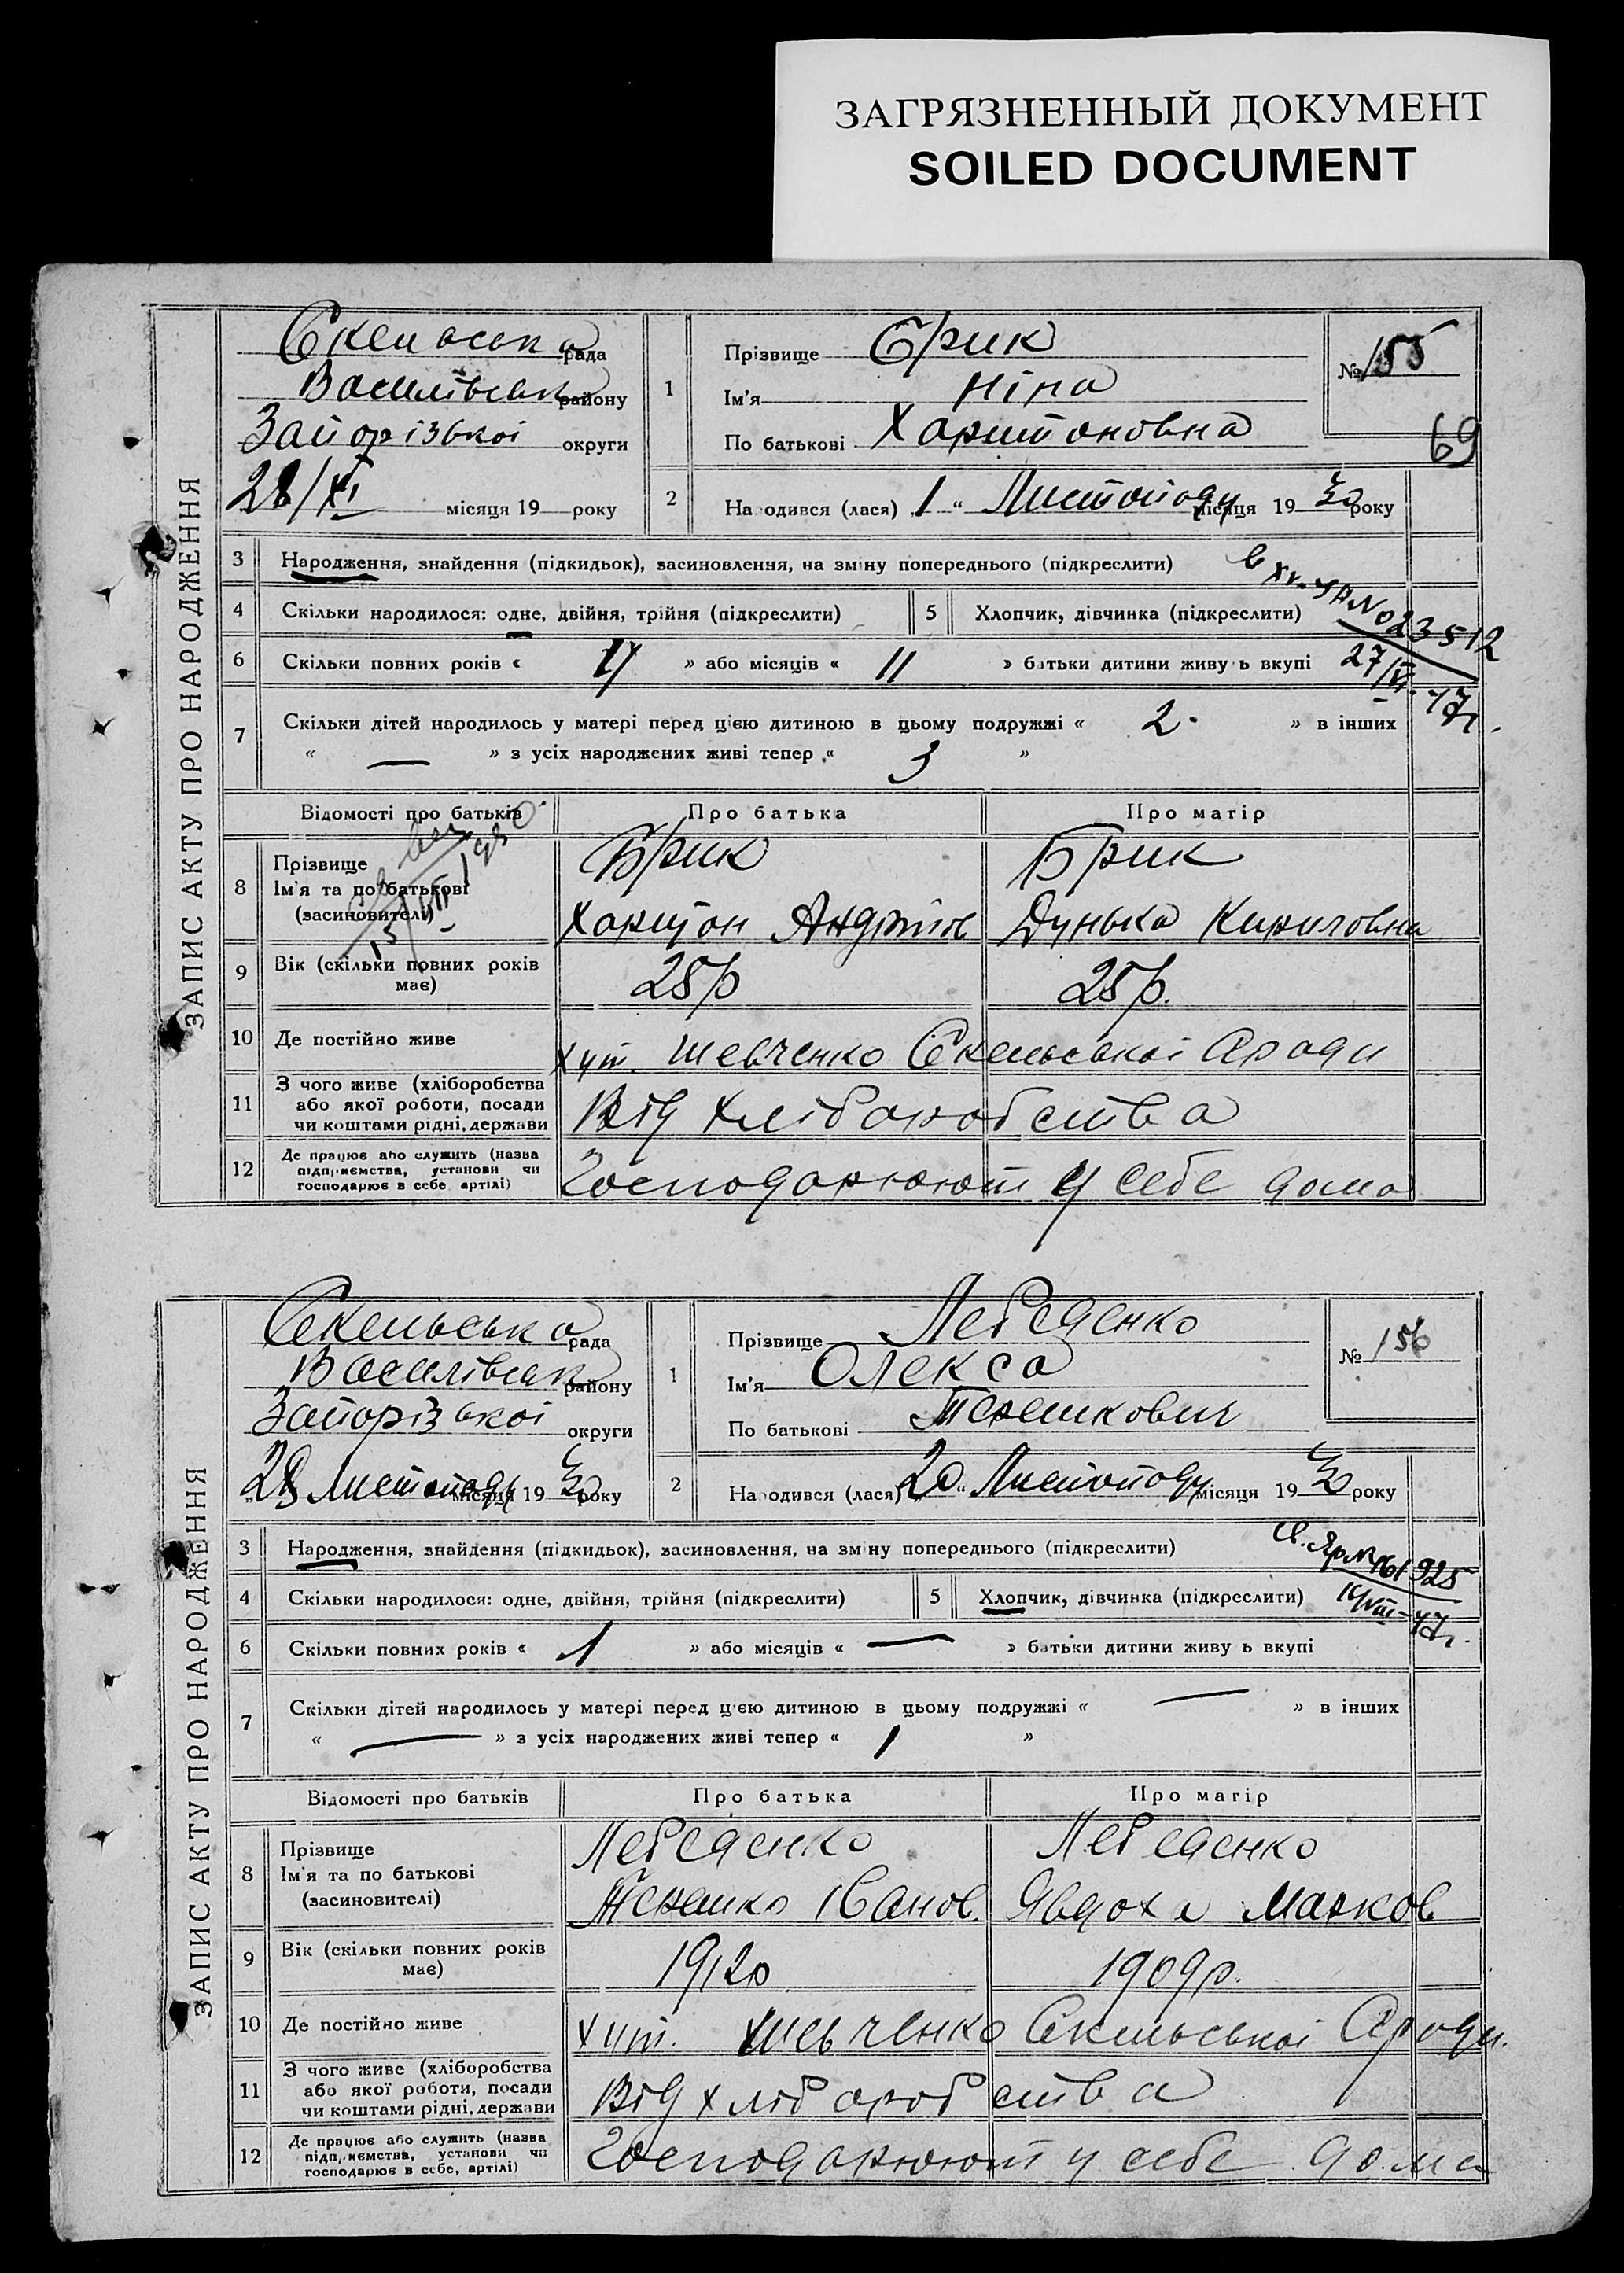 ЗАГРЯЗНЕННЫЙ ДОКУМЕНТ
SOILED DOCUMENT
ЗАПИС АКТУ ПРО НАРОДЖЕННЯ
Скельська рада
Василівськ району
Запорізької округи
28/XI місяця 19 року
1
Прізвище Брик
Ім'я Ніна
По батькові Харитоновна
№ 155
69
2
Народився (лася) 1 " Листопаду місяця 19 30 року
3 Народження, знайдення (підкидьок), засиновлення, на зміну попереднього (підкреслити)
4 Скільки народилося: одне, двійня, трійня (підкреслити)
5 Хлопчик, дівчинка (підкреслити)
№ 023512
27/VI-47г.
6 Скільки повних років « » або місяців « 11 » батьки дитини живуть вкупі
7 Скільки дітей народилось у матері перед цією дитиною в цьому подружжі « 2. » в інших
« — » з усіх народжених живі тепер « 3 »
Відомості про батьків Про батька Про матір
8 Прізвище
Ім'я та по батькові
(засиновителі)
Брик Брик
Харитон Андріїв Дунька Кириловна
9 Вік (скільки повних років має) 25р 25р.
10 Де постійно живе хут. Шевченко Скельської Сради
11 З чого живе (хліборобства
або якої роботи, посади
чи коштами рідні, держави
Від хліборобства
12 Де працює або служить (назва
підприємства, установи чи
господарює в себе, артілі)
Господарюють у себе дома
ЗАПИС АКТУ ПРО НАРОДЖЕННЯ
Скельська рада
Василівськ району
Запорізької округи
„28 Листопаду місяця 19 30 року
1
Прізвище Лебеденко
Ім'я Олекса
По батькові Терешкович
№ 156
2
Народився (лася) „20 " Листопаду місяця 19 30 року
3 Народження, знайдення (підкидьок), засиновлення, на зміну попереднього (підкреслити)
4 Скільки народилося: одне, двійня, трійня (підкреслити)
5 Хлопчик, дівчинка (підкреслити)
6 Скільки повних років « 1 » або місяців « — » батьки дитини живуть вкупі
7 Скільки дітей народилось у матері перед цією дитиною в цьому подружжі « — » в інших
« — » з усіх народжених живі тепер « 1 »
Відомості про батьків Про батька Про матір
8 Прізвище
Ім'я та по батькові
(засиновителі)
Лебеденко Лебеденко
Терешко Іванов. Явдоха Марков
9 Вік (скільки повних років має) 1912р 1909р.
10 Де постійно живе хут. Шевченко Скельської Сради.
11 З чого живе (хліборобства
або якої роботи, посади
чи коштами рідні, держави
Від хліборобства
12 Де працює або служить (назва
підприємства, установи чи
господарює в себе, артілі)
Господарюють у себе дома